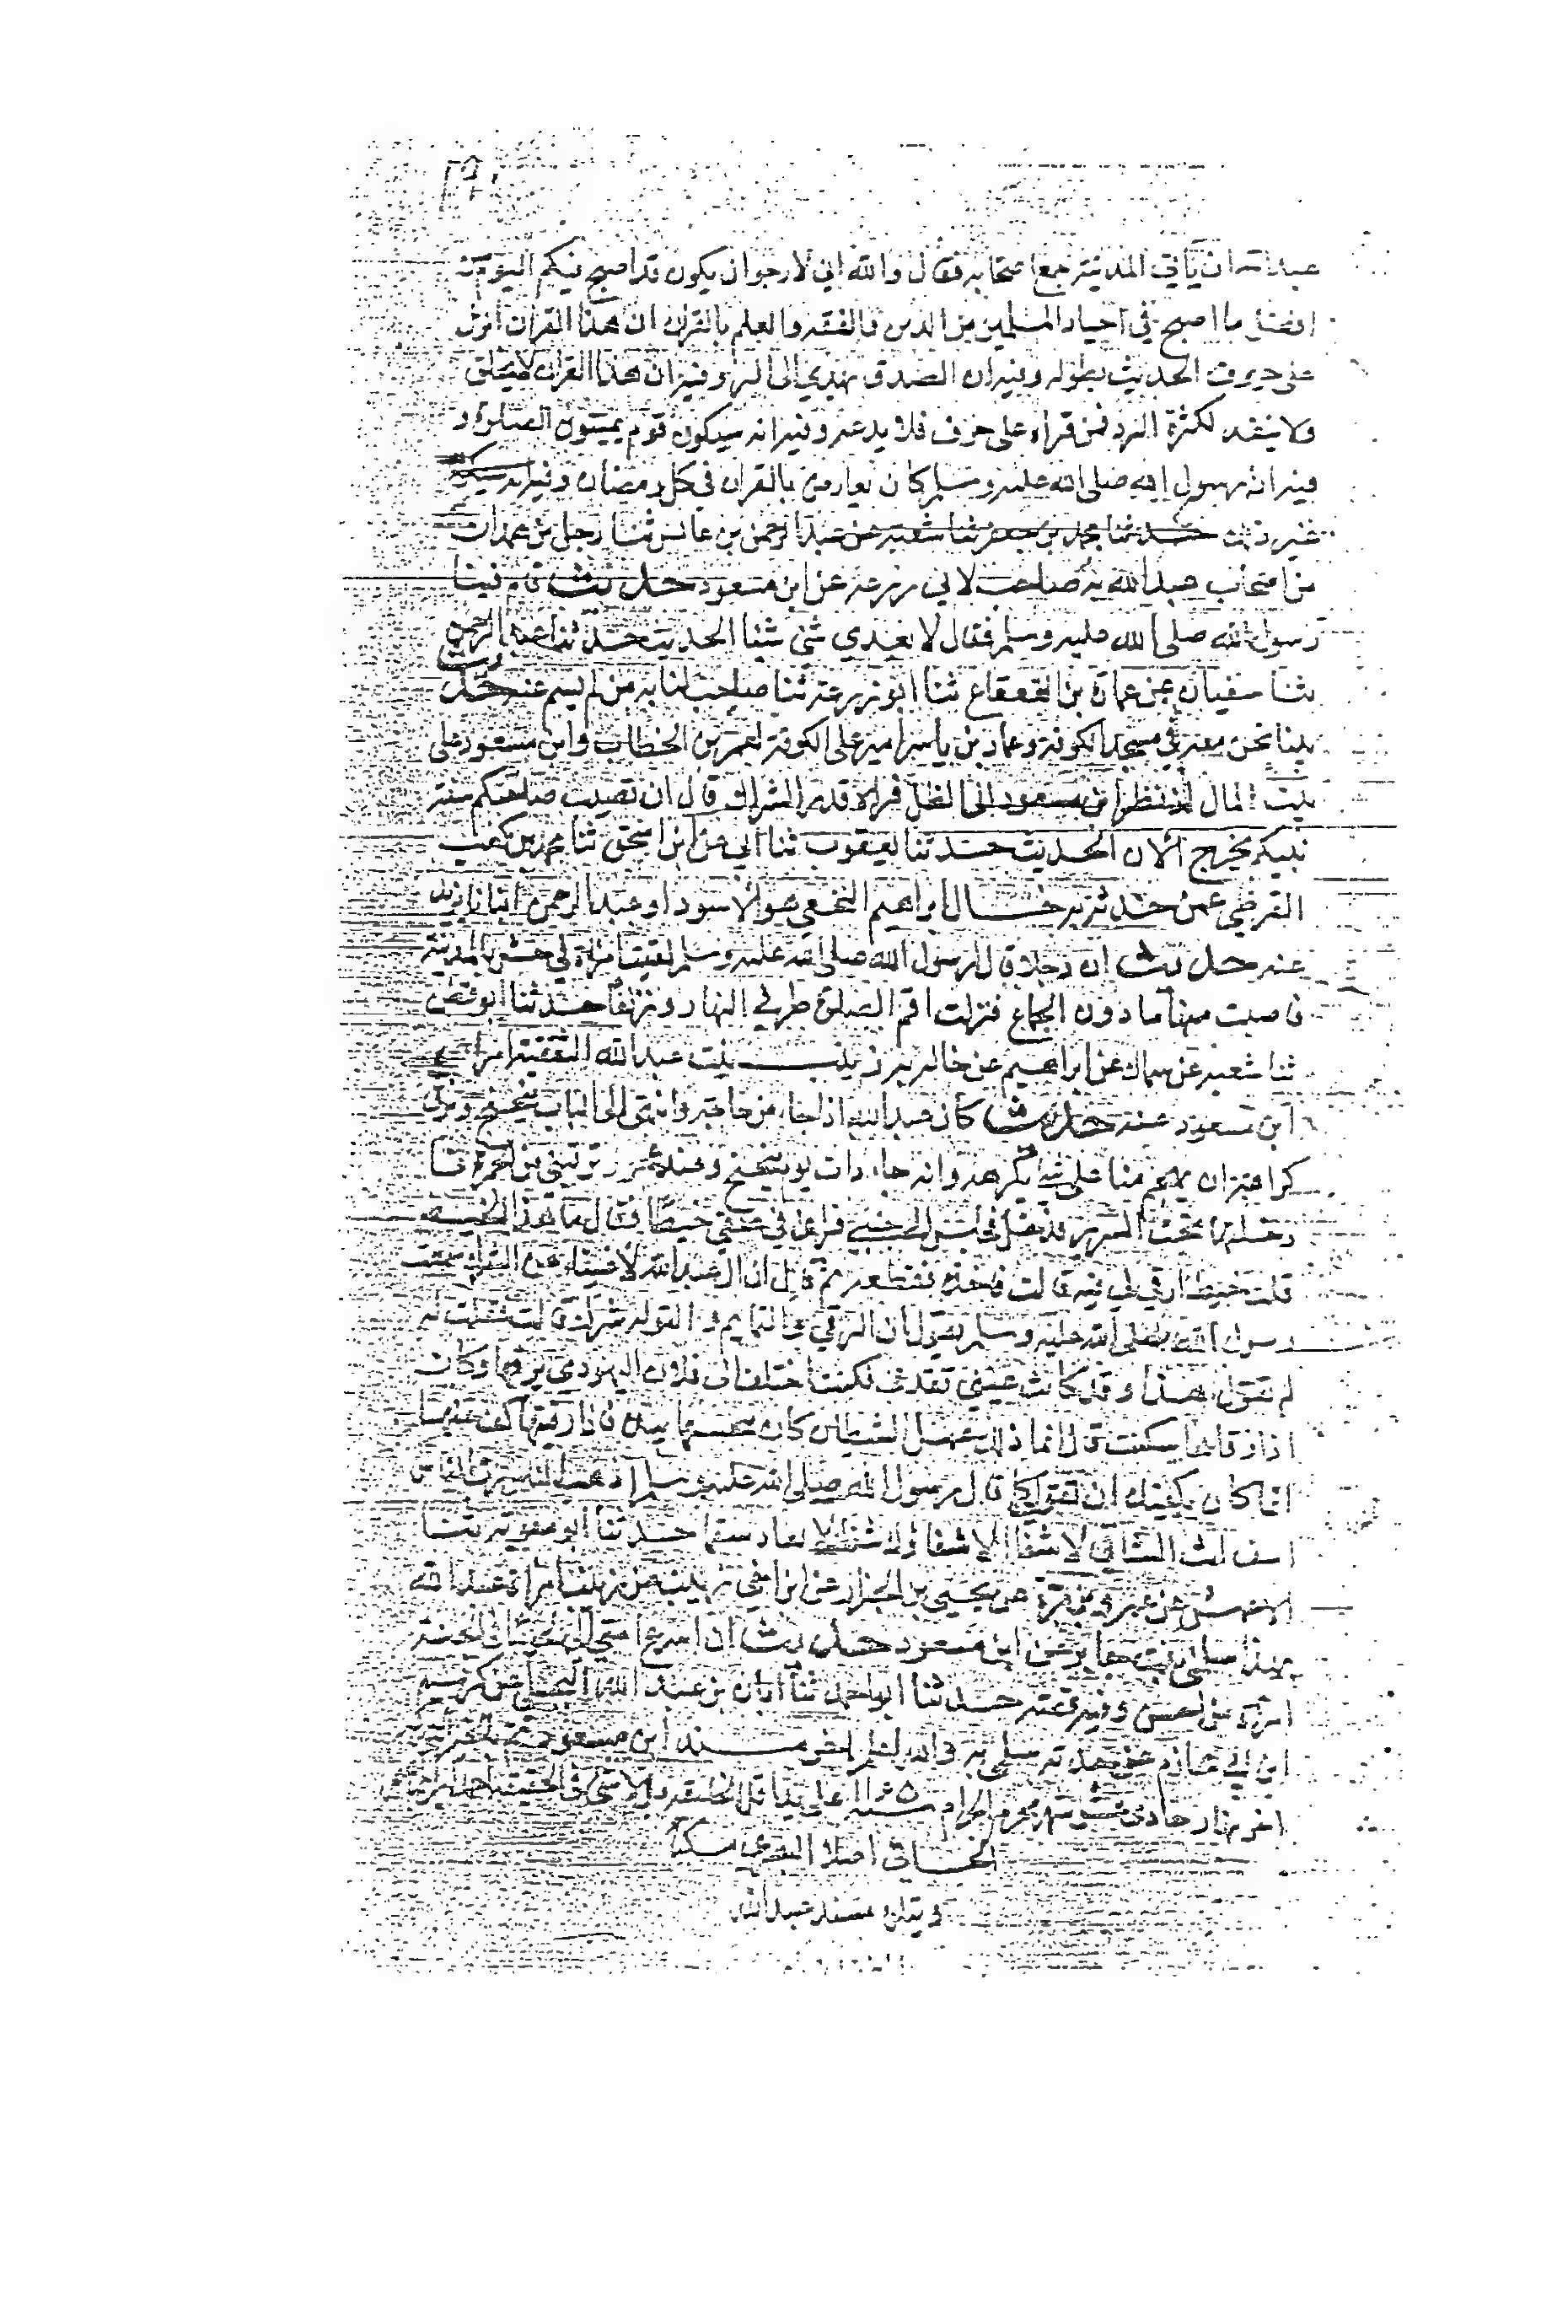 عبد الله ان يأتي المدينة جمع اصحابه فقال والله اني لارجو ان يكون قد اصبح فيكم اليوم من
افضل ما اصبح في اجناد المسلمين من الدين والفقه والعلم بالقران ان هذا القران انزل
على حروف الحديث بطوله وفيه ان الصدق يهدي الى البر وفيه ان هذا القران لا يختلق
ولا يتفه لكثرة الرد فمن قرأه على حرف فلا يدعه وفيه انه سيكون قوم يميتون الصلوة و
فيه ان رسول الله صلى الله عليه وسلم كان يعارض بالقران في كل رمضان وفيه
غير ذلك حدثنا محمد بن جعفر ثنا شعبة عن عبد الرحمن بن عابس ثنا رجل من همدان
من اصحاب عبد الله صاحب لابي زرعة عن ابن مسعود حديث قام فينا
رسول الله صلى الله عليه وسلم فقال لا يعدي شئ شيئا الحديث حدثنا عبد الرحمن
ثنا سفيان عن عمارة بن القعقاع ثنا ابو زرعة ثنا صاحب لنا به من لم يسم عنه حديث
بينا نحن معه في مسجد الكوفة وعمار بن ياسر امير على الكوفة لعمر بن الخطاب وابن مسعود على
بيت المال اذ نظر ابن مسعود الى الظل فرأه قدر الشراك قال ان تصيب صاحبكم سنة
نبيكم يخرج الان الحديث حدثنا يعقوب ثنا ابي عن ابن اسحق ثنا محمد بن كعب
القرظي عمن حدثه به خال ابراهيم النخعي هو الاسود او عبد الرحمن ابنا يزيد
عنه حديث ان رجلا قال لرسول الله صلى الله عليه وسلم لقيت امرأة في حش بالمدينة
فاصبت منها ما دون الجماع فنزلت اقم الصلوة طرفي النهار وزلفا حدثنا ابو قطن
ثنا شعبة عن سماك عن ابراهيم عن خاله به زينب بنت عبد الله الثقفية امرأة
ابن مسعود عنه حديث كان عبد الله اذا جاء من حاجة فانتهى الى الباب تنحنح وبزق
كراهية ان يهجم منا على شئ يكرهه وانه جاء ذات يوم فتنحنح وعندي عجوز ترقيني من الحمرة
فادخلتها تحت السرير فدخل فجلس الى جنبي فرأى في عنقي خيطا فقال ما هذا الخيط
قلت خيط ارقي لي فيه قالت فاخذه فقطعه ثم قال ان ال عبد الله لاغنياء عن الشرك سمعت
رسول الله صلى الله عليه وسلم يقول ان الرقى والتمايم والتولة شرك قالت فقلت له
لم تقول هذا وقد كانت عيني تقذف فكنت اختلف الى فلان اليهودي يرقيها وكان
اذا رقاها سكنت قال انما ذلك عمل الشيطان كان ينخسها بيده فاذا رقيتها كف عنها
انما كان يكفيك ان تقولي كما قال رسول الله صلى الله عليه وسلم اذهب الباس رب الناس
اشف انت الشافي لا شفا الا شفاؤك شفا لا يغادر سقما حدثنا ابو معوية ثنا
الاعمش عن عمرو بن مرة عن يحيى بن الجزار عن ابن اخي زينب عن زينب امرأة عبد الله
بهذا سلمى بنت جابر عن ابن مسعود حديث ان اسرع امتي بي لحوقا في الجنة
امرأة من احمس وفيه قصة حدثنا ابو احمد ثنا ابان بن عبد الله البجلي عن كريم
ابن ابي حازم عن جدته سلمى به والله اعلم اخر مسند ابن مسعود
اخر نهار حادي شهر محرم الحرام سنة
ويتلوه مسند عبد الله